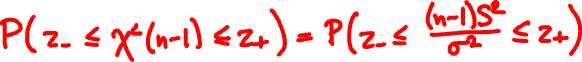 P(z₋ ≤ χ²(n-1) ≤ z₊) = P(z₋ ≤ (n-1)S²/σ² ≤ z₊)